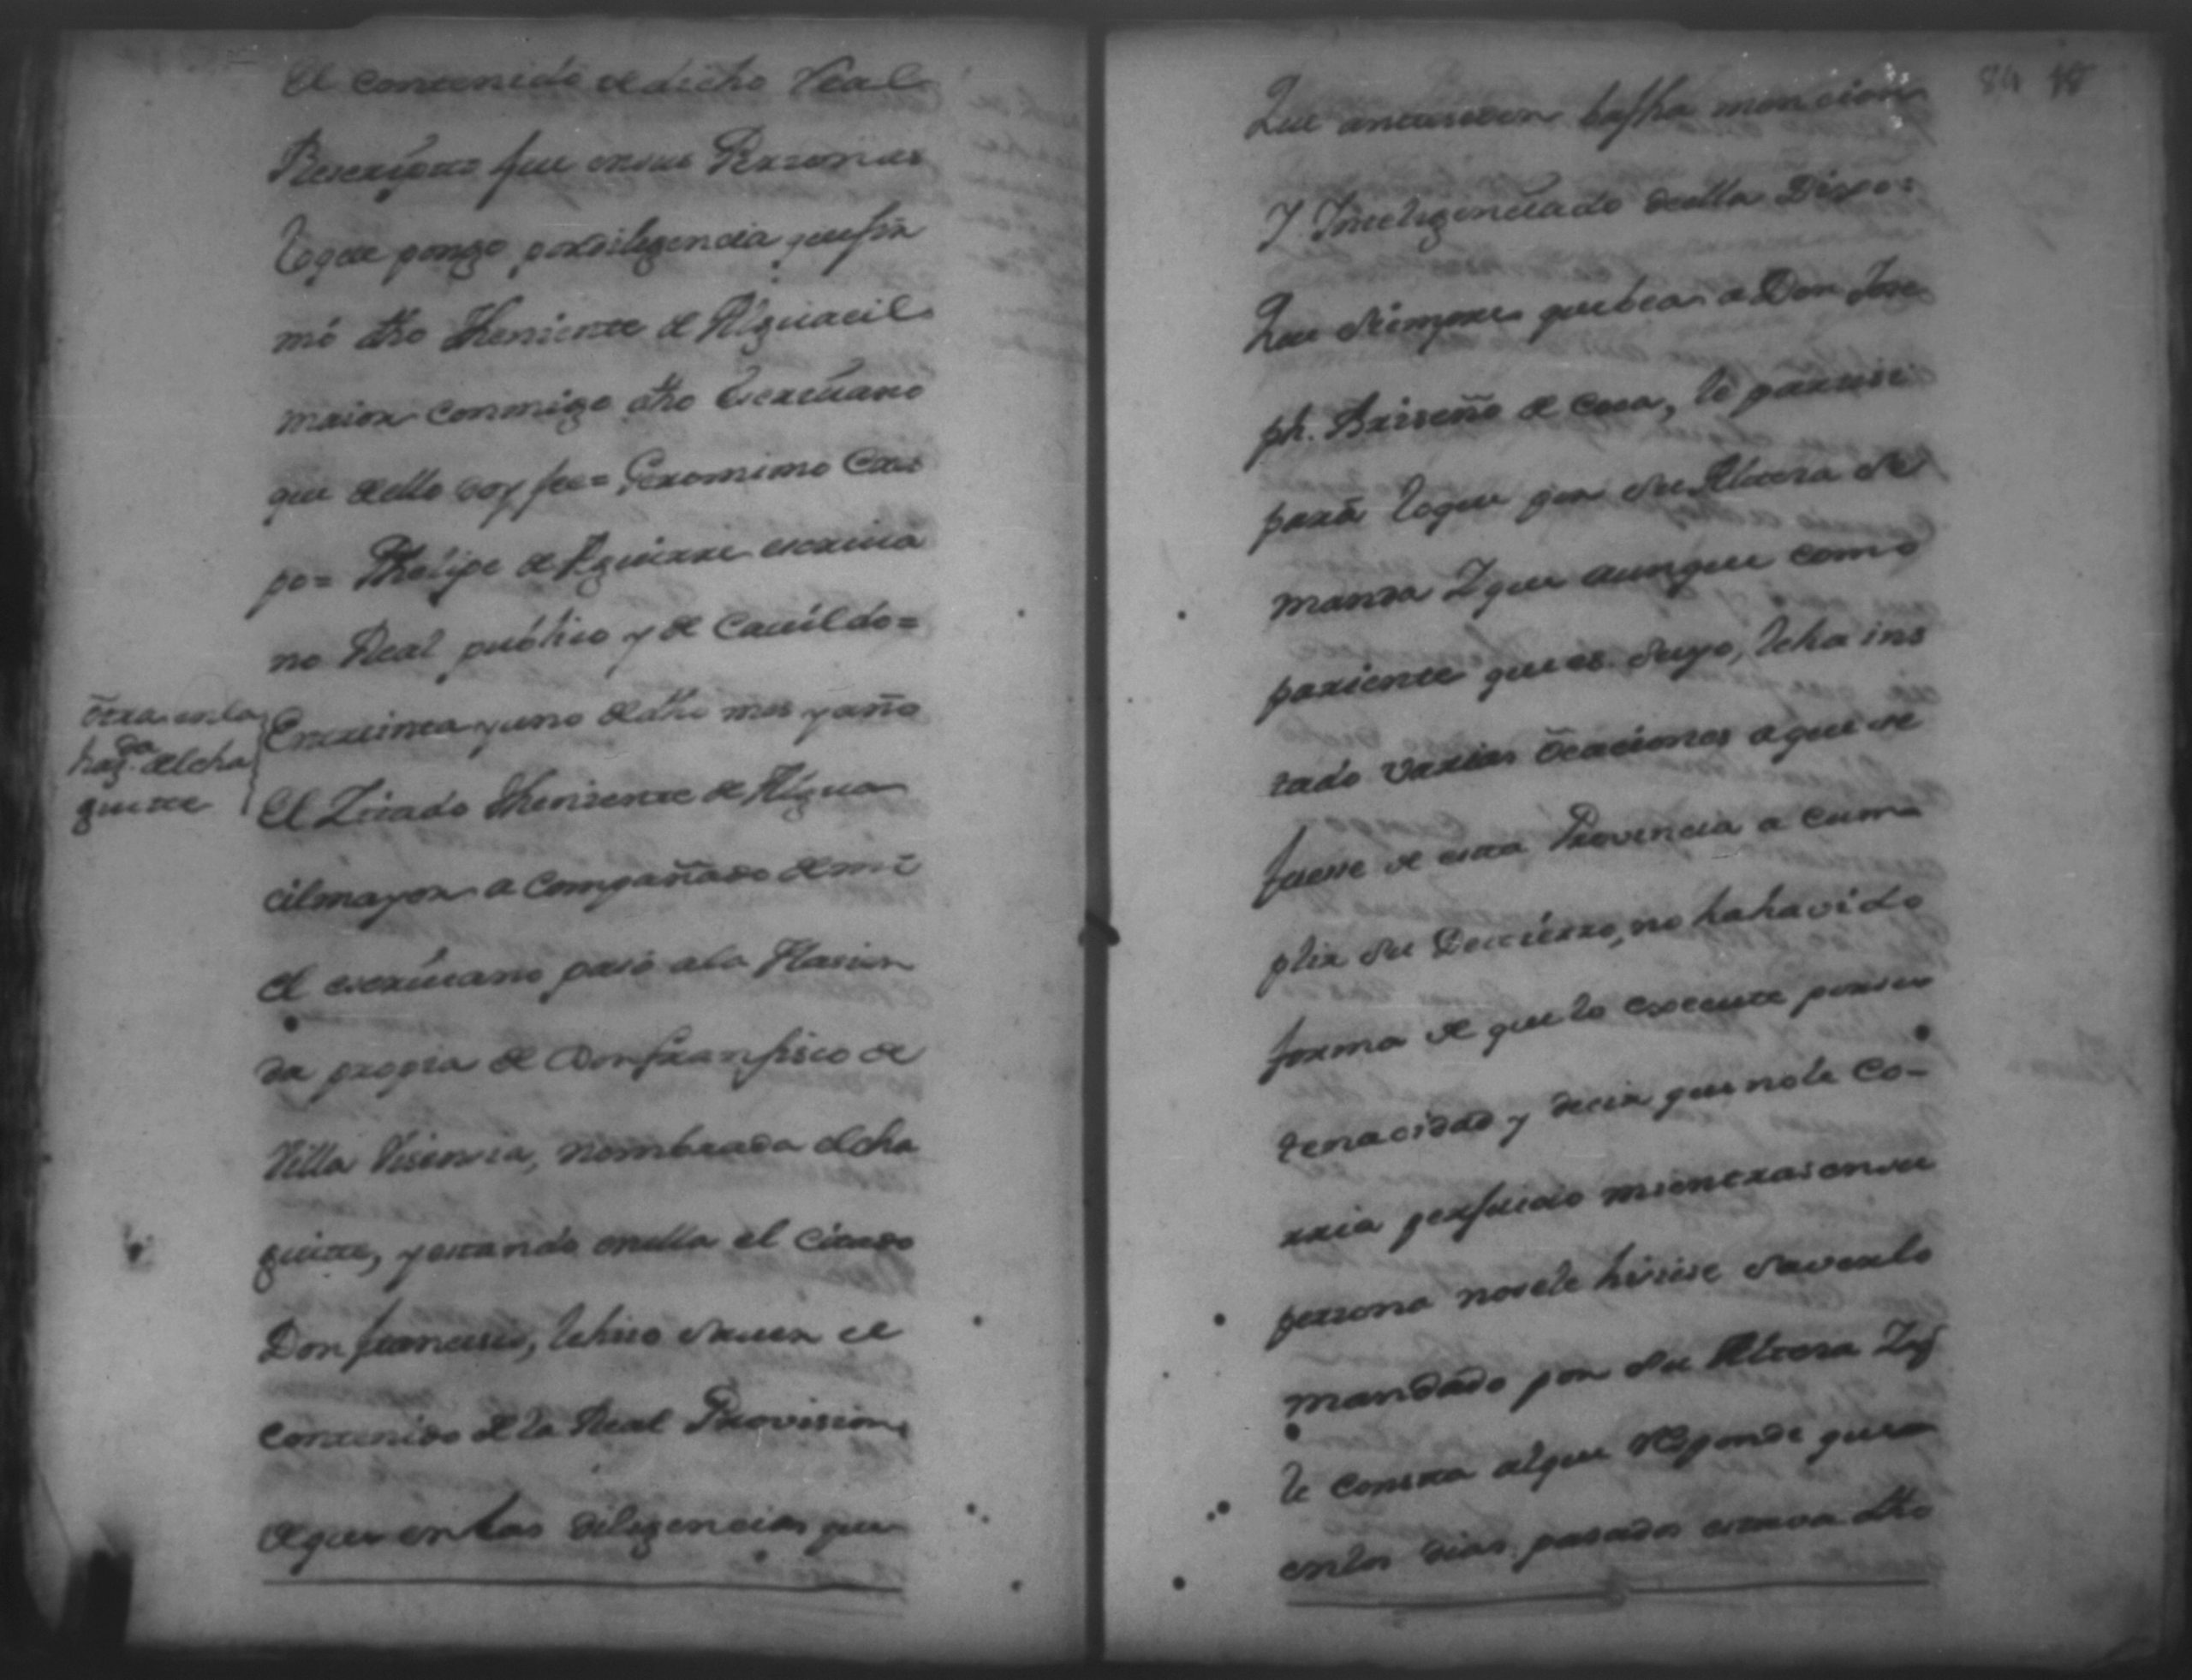 El contenido de dicho Real
Rescripto fue en sus Personas
lo que pongo por diligencia que fir
mó dho Theniente de Alguacil
maior conmigo dho Escriuano
que dello doy fee= Geronimo Cres
po= Phelipe de Aguirre escriua
no Real publico y de Cauildo=
otra en la
haz.da del cha
guitte
En treinta y uno de dho mes y año
El Zitado Theniente de Algua
cil mayor a compañado de mi
el escriuano pasó a la Hacien
da propia de Don Franfisco de
Villa Visensia, nombrada el cha
guitte, y estando en ella el citado
Don francisco, le hiso sauer el
contenido de la Real Provission,
de que en las diligencias que
84 18
Que antesseden hassta mencion
Y Inteligenciado de ella Dixo:
Que siempre que bea a Don Jose
ph. Brizeño de Coca, le partisi
pará lo que por su Alteza se
manda Y que aunque como
pariente que es suyo, le ha ins
tado varias ocaciones a que se
fuesse de esta Provincia a cum
plir su Destierro, no ha havido
forma de que lo execute por su
tenacidad y decir que no le co-
rria perjuicio mientras en su
persona no se le hisiese saver lo
mandado por su Alteza Y q
le consta al que responde que
en los dias pasados estava dho